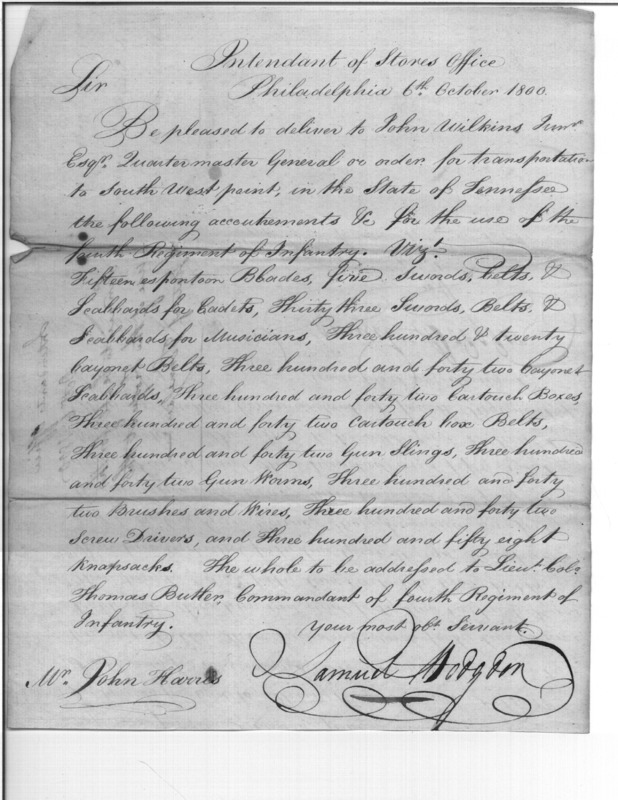 Intendant of Stores Office
Sir Philadelphia 6th. October 1800.
Be pleased to deliver to John Wilkins Junr.
Esqr. Quartermaster General or order for transportation
to South West point, in the State of Tennessee
the following accoutrements &c for the use of the
fourth Regiment of Infantry. Vizt.
Fifteen espontoon Blades, five Swords, belts, &
Scabbards for Cadets, Thirty three Swords, Belts, &
Scabbards for Musicians, Three hundred & twenty
bayonet Belts, Three hundred and forty two bayonet
Scabbards, Three hundred and forty two Cartouch Boxes,
Three hundred and forty two Cartouch box Belts,
Three hundred and forty two Gun Slings, Three hundred
and forty two Gun Worms, Three hundred and forty
two Brushes and Wires, Three hundred and forty two
Screw Drivers, and Three hundred and fifty eight
Knapsacks. The whole to be addressed to Lieut. Colo.
Thomas Butler, Commandant of fourth Regiment of
Infantry.
Your most obt. Servant.
Samuel Hodgdon
Mr. John Harris